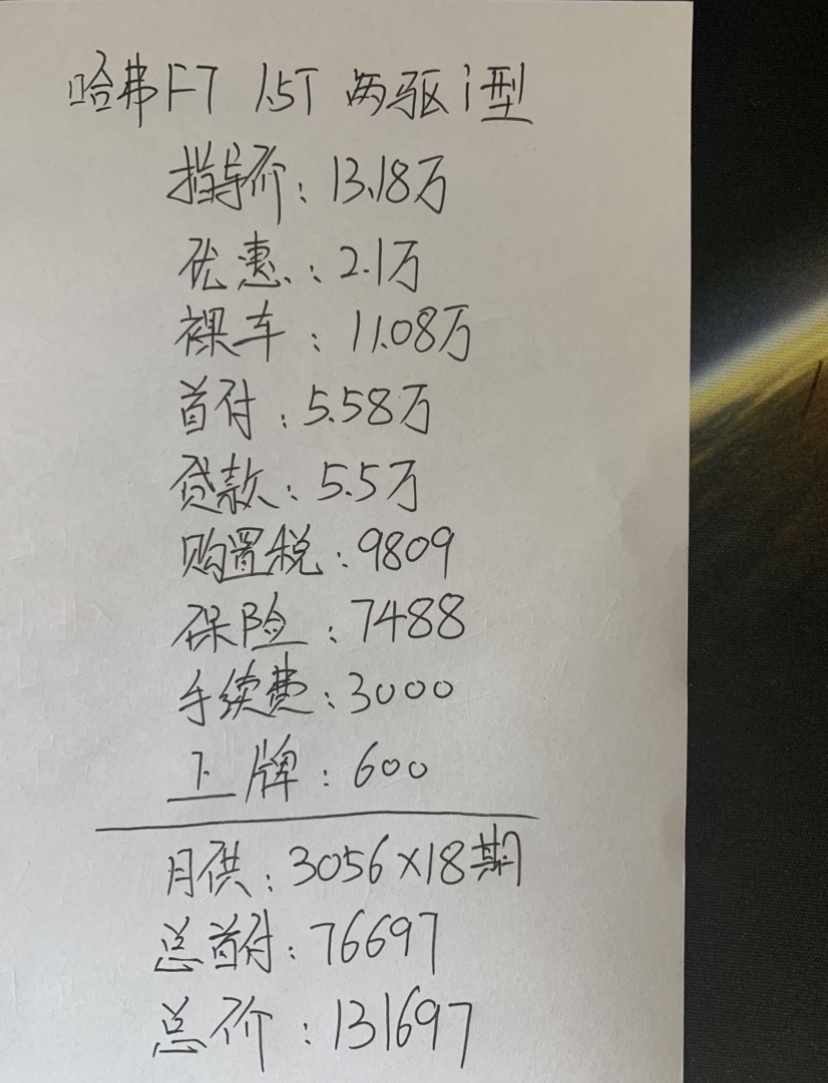 哈弗F7 1.5T 两驱i型
指导价：13.18万
优惠：2.1万
裸车：11.08万
首付：5.58万
贷款：5.5万
购置税：9809
保险：7488
手续费：3000
上牌：600
月供：3056×18期
总首付：76697
总价：131697